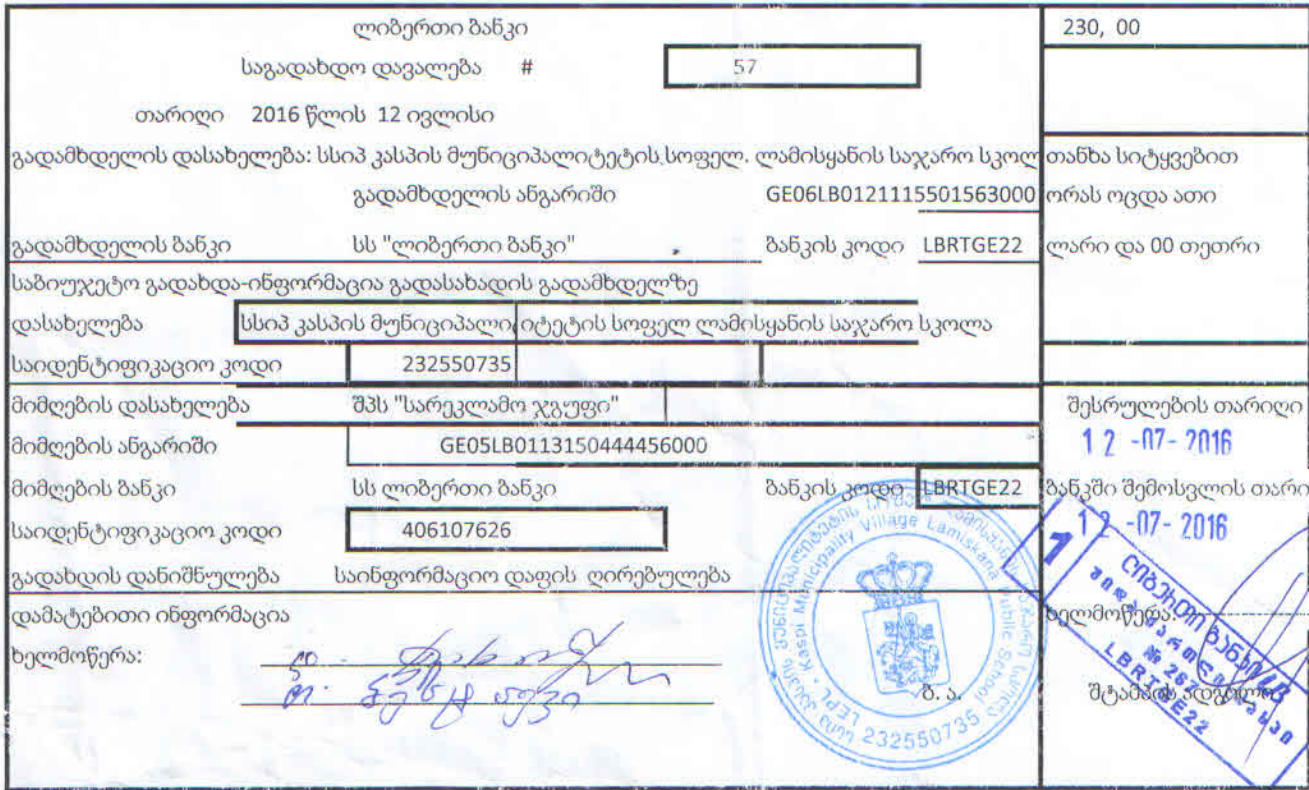 ლიბერთი ბანკი 230, 00
საგადახდო დავალება # 57
თარიღი 2016 წლის 12 ივლისი
გადამხდელის დასახელება: სსიპ კასპის მუნიციპალიტეტის სოფელ. ლამისყანის საჯარო სკოლ თანხა სიტყვებით
გადამხდელის ანგარიში GE06LB0121115501563000 ორას ოცდა ათი
გადამხდელის ბანკი სს "ლიბერთი ბანკი" ბანკის კოდი LBRTGE22 ლარი და 00 თეთრი
საბიუჯეტო გადახდა-ინფორმაცია გადასახადის გადამხდელზე
დასახელება სსიპ კასპის მუნიციპალიტეტის სოფელ ლამისყანის საჯარო სკოლა
საიდენტიფიკაციო კოდი 232550735
მიმღების დასახელება შპს "სარეკლამო ჯგუფი" შესრულების თარიღი
მიმღების ანგარიში GE05LB0113150444456000 12 -07- 2016
მიმღების ბანკი სს ლიბერთი ბანკი ბანკის კოდი LBRTGE22 ბანკში შემოსვლის თარი
საიდენტიფიკაციო კოდი 406107626 12 -07- 2016
გადახდის დანიშნულება საინფორმაციო დაფის ღირებულება
დამატებითი ინფორმაცია ხელმოწერა:
ხელმოწერა:
ბ. ა. შტამპის ადგილი
Kaspi Municipality Village Lamiskana Public School
LEPL
232550735
1
ლიბერთი ბანკი
№ 26
LBRTGE22